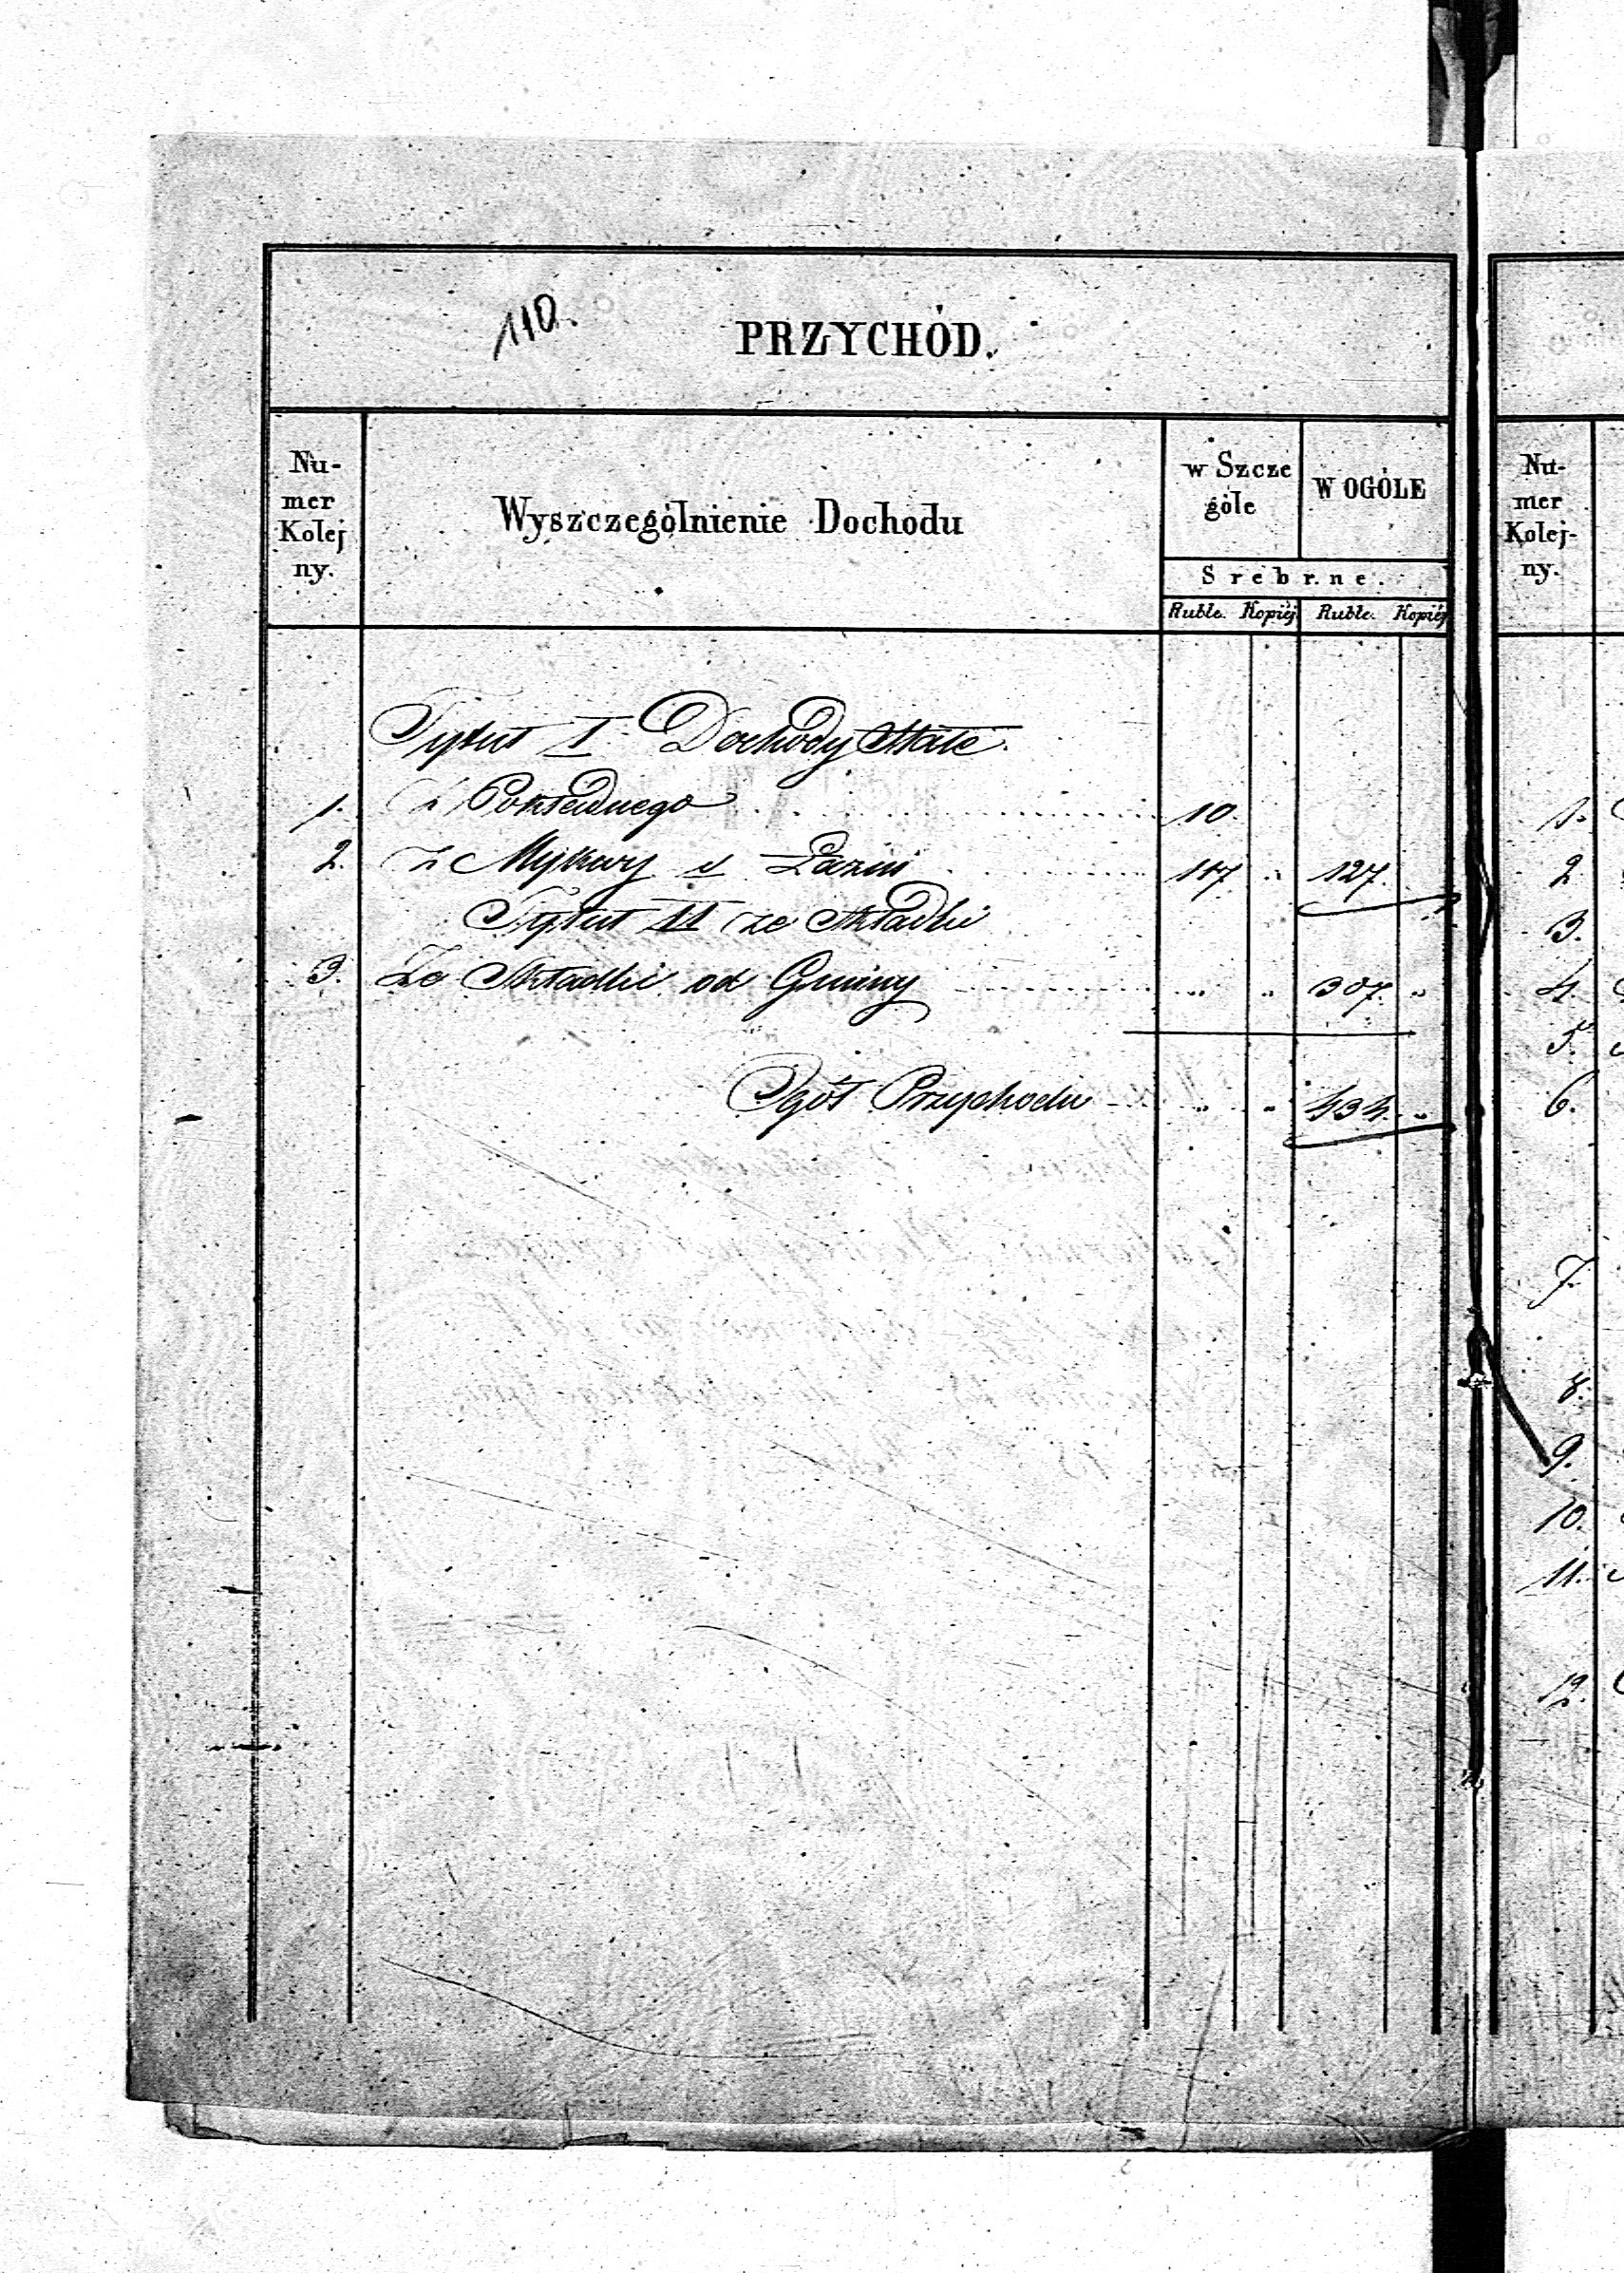 110.
PRZYCHÓD.
Numer Kolejny.
Wyszczególnienie Dochodu
w Szczególe
W OGÓLE
Srebrne.
Ruble. Kopiéj Ruble. Kopiéj
Tytuł I Dochody Stałe.
1. Z Pokładnego 10.
2. Z Mykwy i Łazni 117 „ 127.
Tytuł II ze Składki
3. Ze Składki od Gminy „ „ 307. „
Ogół Przychodu „ „ 434. „
Numer Kolejny.
1.
2
3.
4.
5.
6.
7.
8.
9.
10.
11.
12.